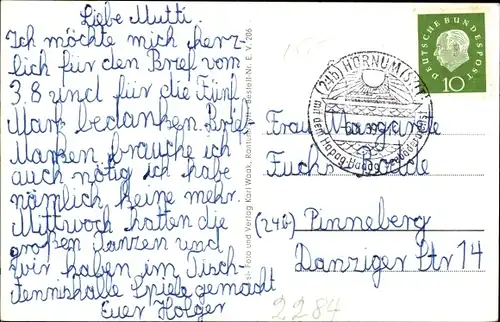 Liebe Mutti.
Ich möchte mich herz-
lich für den Brief vom
3.8 und für die Fünf
Mark bedanken. Brief
Marken brauche ich
auch nötig ich habe
nämlich keine mehr.
Mittwoch hatten die
großen Tanzen und
Wir haben im Tisch-
tennishalle Spiele gemacht
Euer Holger
Foto und Verlag Karl Waak, Rantum/Sylt Bestell-Nr. E. V. 206
(24b) HÖRNUM (SYLT)
mit der Hapag
DEUTSCHE BUNDESPOST
10
Frau Margarete
Fuchs-
(24b) Pinneberg
Danziger Str 14
2284